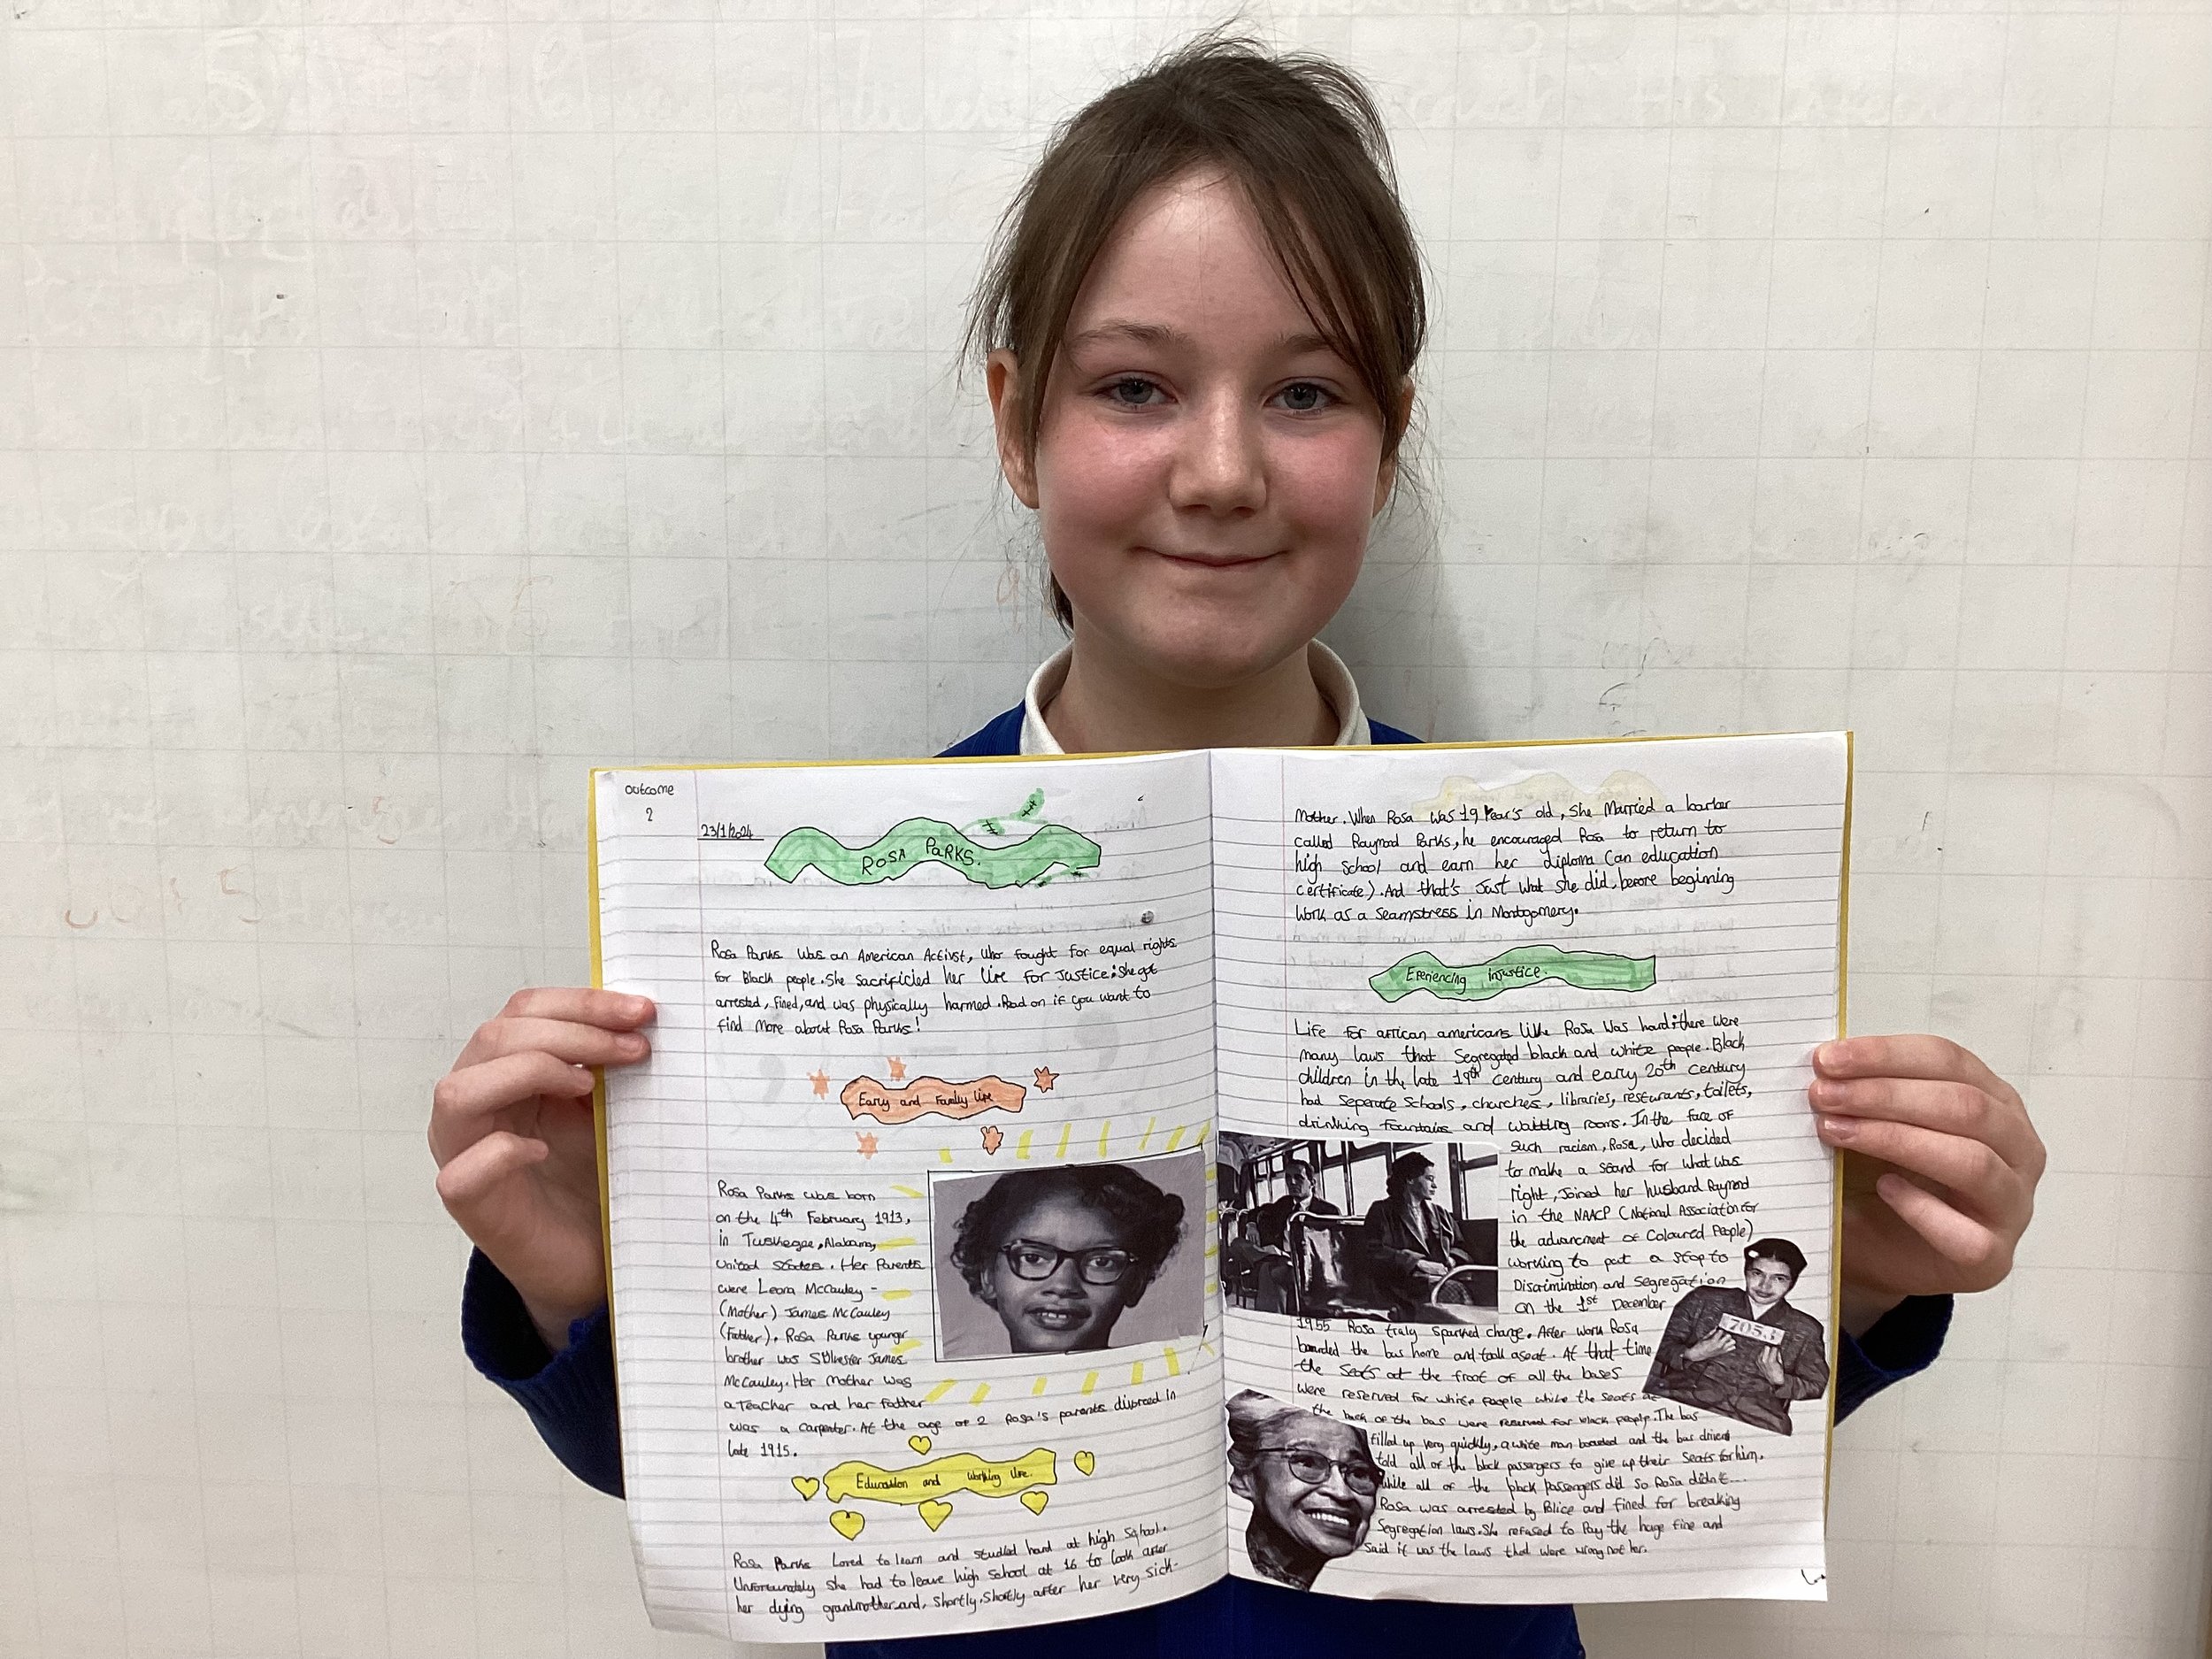 outcome
2
23/1/2024
ROSA PARKS.
Rosa Parks was an American Activst, who fought for equal rights
for Black people. She sacrificied her life for justice; She got
arrested, fined, and was physically harmed. Read on if you want to
find more about Rosa Parks!
Early and Family life
Rosa Parks was born
on the 4th February 1913,
in Tuskegee, Alabama,
United States. Her Parents
were Leona McCauley -
(Mother) James McCauley
(Father). Rosa Parks younger
brother was Sylvester James
McCauley. Her Mother was
a Teacher and her Father
was a carpenter. At the age of 2 Rosa's parents divorced in
late 1915.
Education and working life.
Rosa Parks Loved to learn and studied hard at high School.
Unfortunately she had to leave high school at 16 to look after
her dying grandmother and, shortly. Shortly after her very sick-
Mother. When Rosa was 19 Year's old, she Married a barber
called Raymod Parks, he encouraged Rosa to return to
high School and earn her diploma (an education
certificate). And that's Just what she did, before beginning
work as a seamstress in Montgomery.
Exeriencing injustice.
Life for african americans like Rosa was hard; there were
many laws that Segregated black and white people. Black
children in the late 19th century and early 20th century
had seperate Schools, churches, libraries, resturants, toilets,
drinking fountains and waitting rooms. In the face of
such racism, Rosa, who decided
to make a stand for what was
right, Joined her husband Raymond
in the NAACP (National Association for
the advancment of Coloured People)
working to put a stop to
Discrimination and Segregation
on the 1st December
7053
1955 Rosa truly sparked change. After work Rosa
boarded the bus home and took a seat. At that time
the seats at the front of all the buses
were reserved for white people while the seats at
the back of the bus were reserved for black people. The bus
filled up very quickly, a white man boarded and the bus driver
told all of the black passengers to give up their seats for him.
While all of the black passengers did so Rosa didn't...
Rosa was arrested by Police and fined for breaking
Segregation laws. She refused to Pay the huge fine and
Said it was the laws that were wrong not her.